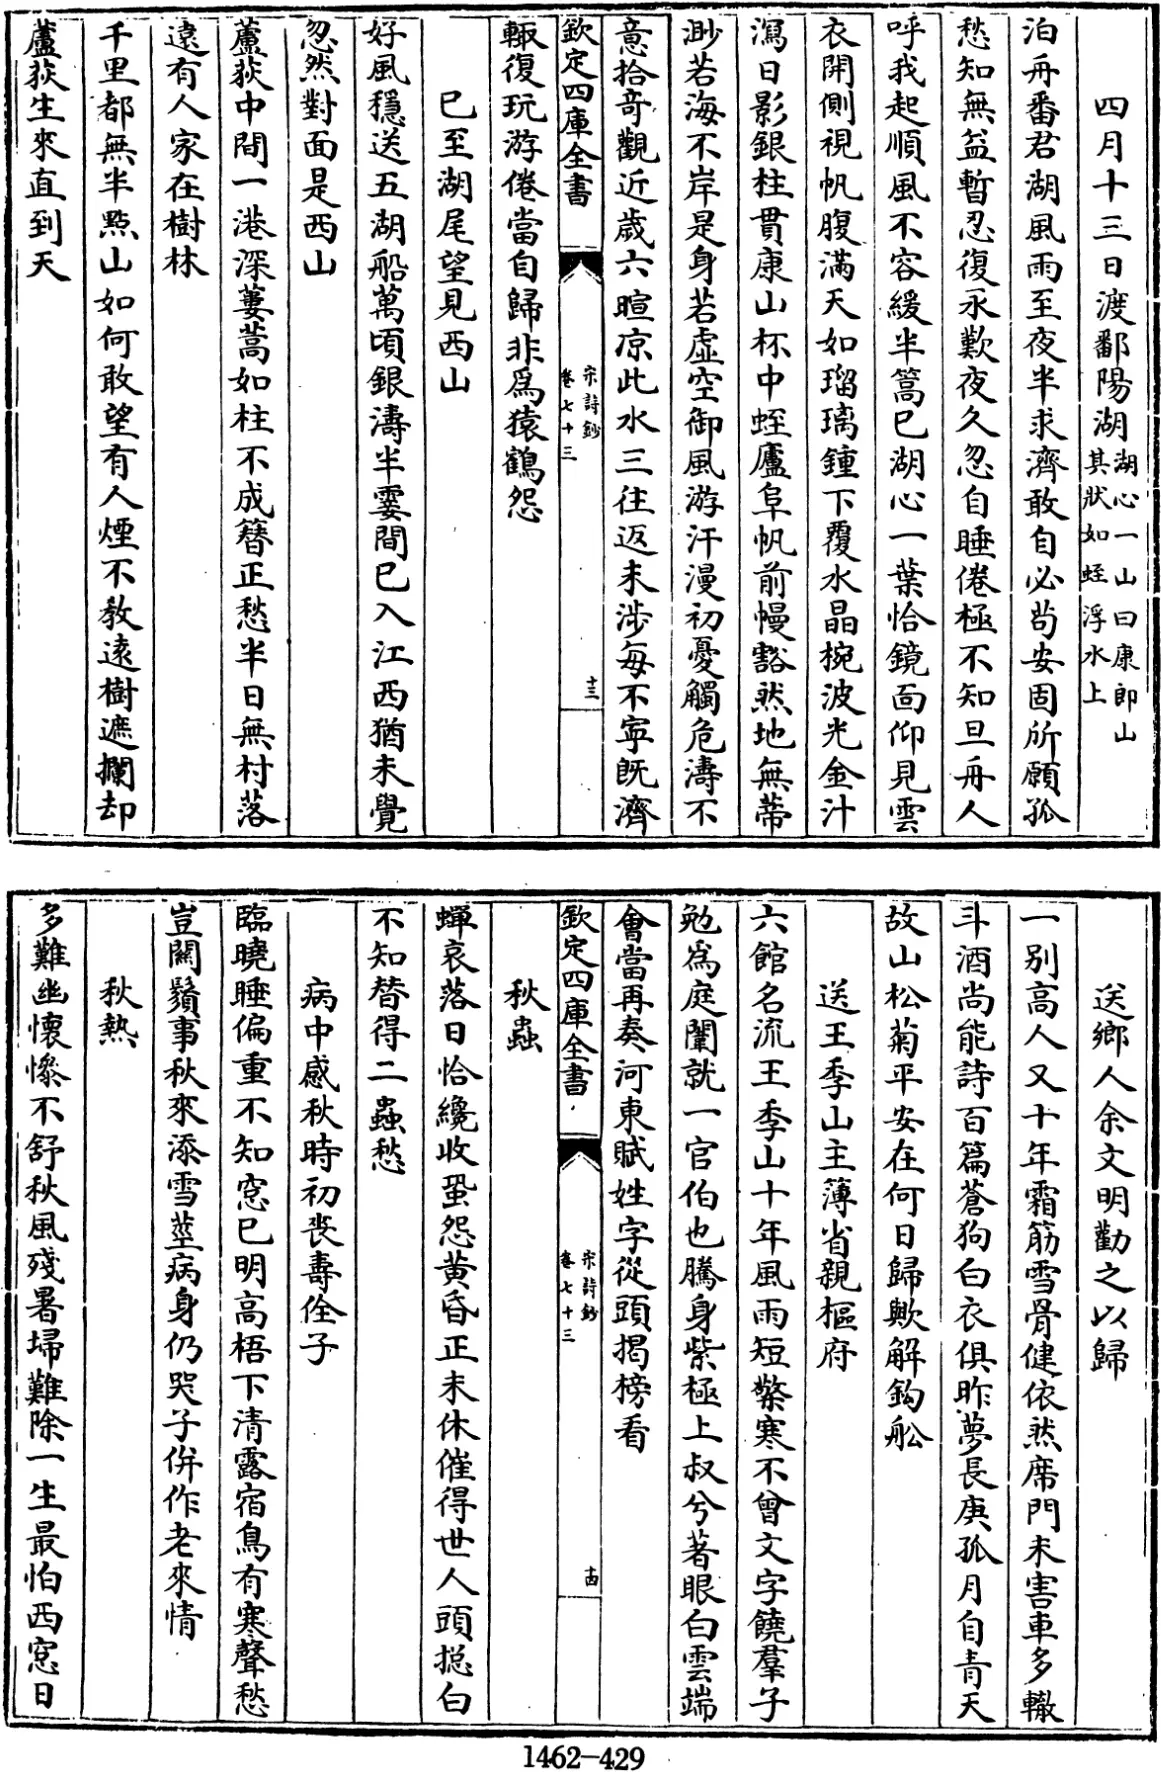 四月十三日渡鄱陽湖湖心一山曰康郎山其狀如蛭浮水上
泊舟番君湖風雨至夜半求濟敢自必苟安固所願孤
愁知無益暫忍復永歎夜久忽自睡倦極不知旦舟人
呼我起順風不容緩半篙已湖心一葉恰鏡面仰見雲
衣開側視帆腹滿天如瑠璃鍾下覆水晶椀波光金汁
瀉日影銀柱貫康山杯中蛭廬阜帆前幔豁然地無蒂
渺若海不岸是身若虛空御風游汗漫初憂觸危濤不
意拾奇觀近歲六暄凉此水三往返未涉每不寧既濟
欽定四庫全書
宋詩鈔
卷七十三
十三
輙復玩游倦當自歸非為猿鶴怨
已至湖尾望見西山
好風穩送五湖船萬頃銀濤半霎間已入江西猶未覺
忽然對面是西山
蘆荻中間一港深蔞蒿如柱不成簪正愁半日無村落
遠有人家在樹林
千里都無半點山如何敢望有人煙不教遠樹遮攔却
蘆荻生來直到天
送鄉人余文明勸之以歸
一别高人又十年霜筋雪骨健依然席門未害車多轍
斗酒尚能詩百篇蒼狗白衣俱昨夢長庚孤月自青天
故山松菊平安在何日歸歟解鈎船
送王季山主薄省親樞府
六館名流王季山十年風雨短檠寒不曾文字饒羣子
勉為庭闈就一官伯也騰身紫極上叔兮著眼白雲端
會當再奏河東賦姓字從頭揭榜看
欽定四庫全書
宋詩鈔
卷七十三
十四
秋蟲
蟬哀落日恰纔收蛩怨黄昏正未休催得世人頭揔白
不知替得二蟲愁
病中感秋時初喪壽佺子
臨曉睡偏重不知窓已明高梧下清露宿鳥有寒聲愁
豈關鬚事秋來添雪莖病身仍哭子併作老來情
秋熱
多難幽懷慘不舒秋風殘暑埽難除一生最怕西窓日
1462-429